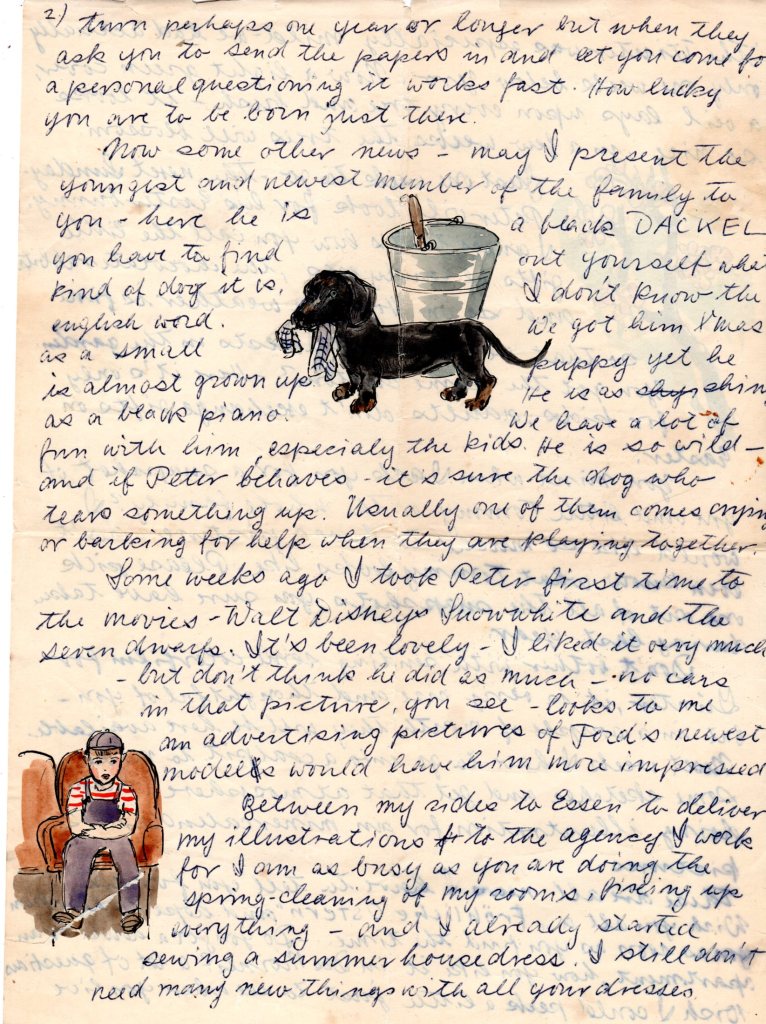 2)
turn perhaps one year or longer but when they
ask you to send the papers in and let you come fo
a personal questioning it works fast. How lucky
you are to be born just there.
Now some other news - may I present the
youngest and newest member of the family to
you - here he is a black DACKEL
you have to find out yourself what
kind of dog it is. I don't know the
english word. We got him X'mas
as a small puppy yet he
is almost grown up. He is as shys shing
as a black piano. We have a lot of
fun with him, especialy the kids. He is so wild -
and if Peter behaves - it's sure the dog who
tears something up. Usually one of them comes crying
or barking for help when they are playing together.
Some weeks ago I took Peter first time to
the movies - Walt Disneys Snowwhite and the
seven dwarfs. It's been lovely - I liked it very much
- but don't think he did as much - no cars
in that picture, you see - looks to me
an advertising pictures of Ford's newest
models would have him more impressed
Between my rides to Essen to deliver
my illustrations to the agency I work
for I am as busy as you are doing the
spring-cleaning of my rooms, fixing up
everything - and I already started
sewing a summer housedress. I still don't
need many new things with all your dresses.